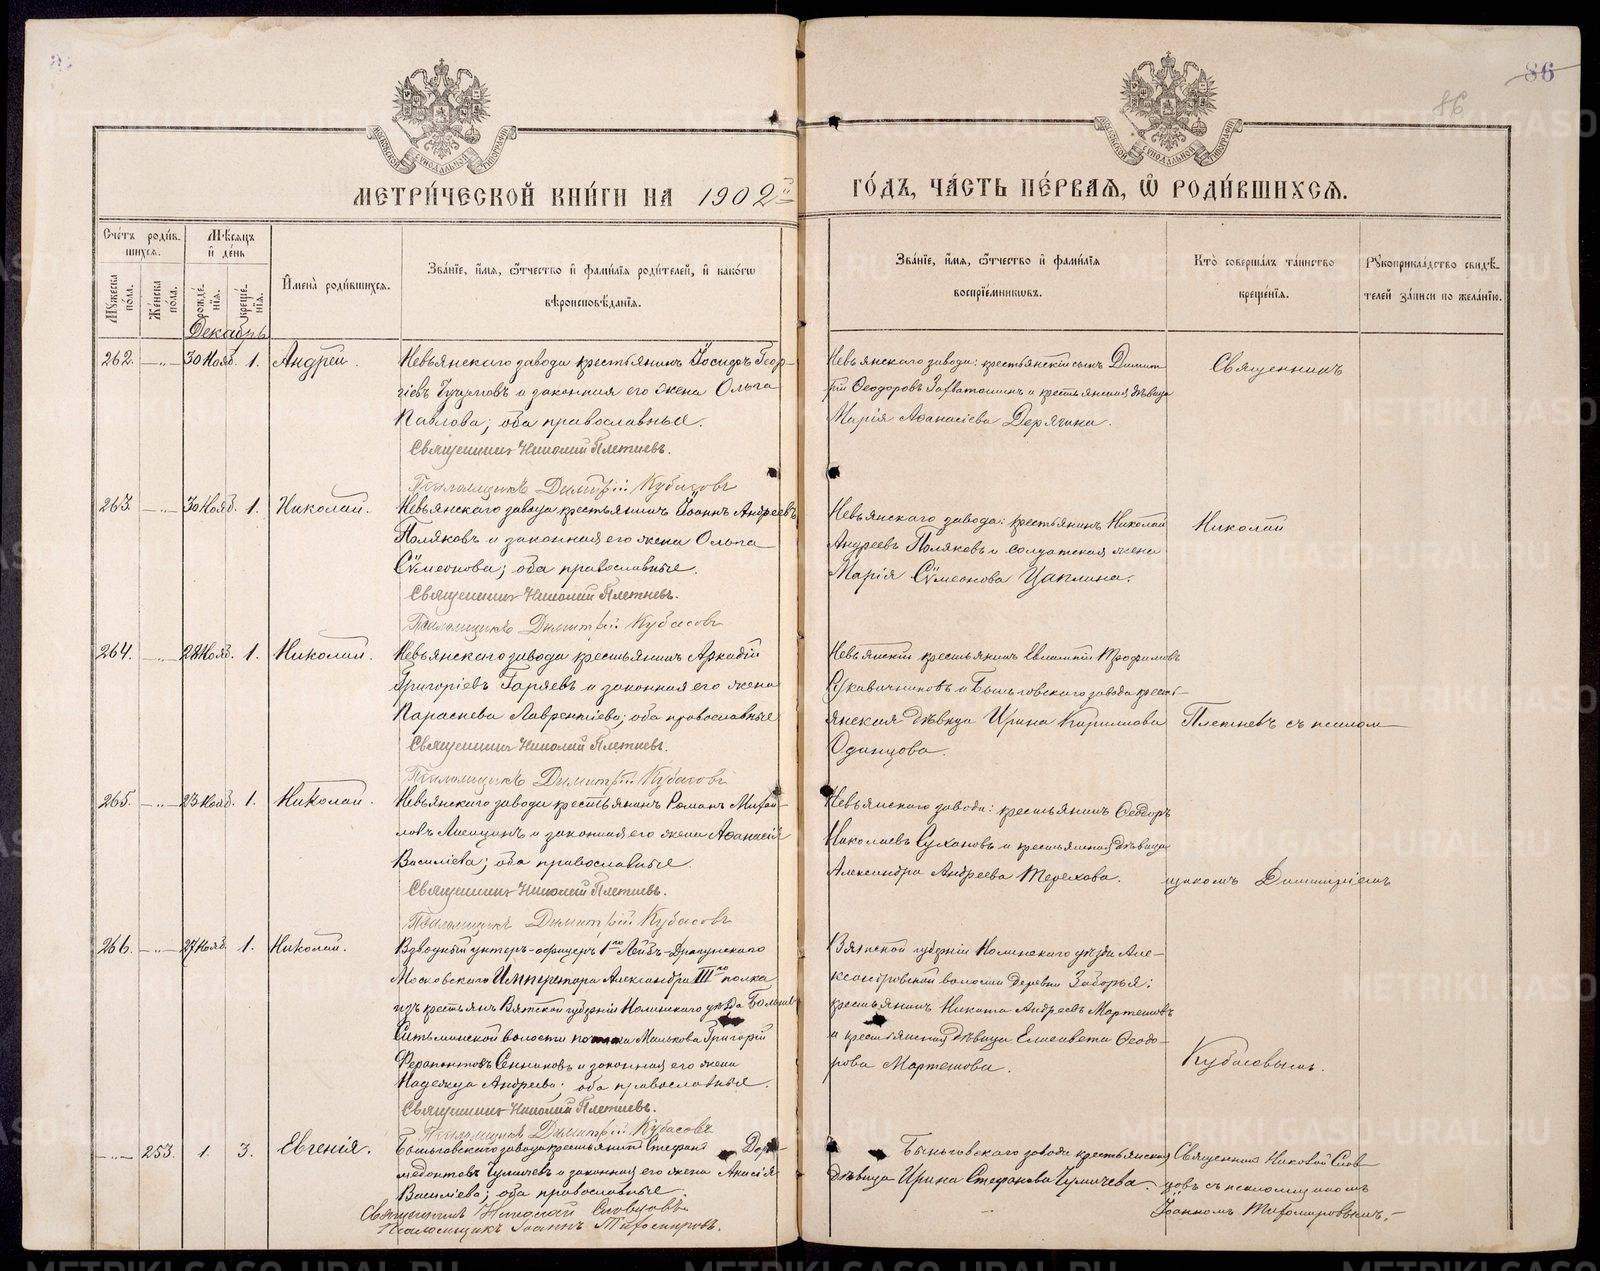 86
86
МЕТРИ́ЧЕСКОЙ КНИ́ГИ НА 1902й
ГО́ДЪ, ЧА́СТЬ ПЕ́РВАЯ, Ѡ҆ РОДИ́ВШИХСЯ.
Сче́тъ роди́в-
шихся.
Мѣ́сяцъ
и҆ де́нь
Му́жеска
пола.
Же́нска
пола.
рожде́-
нїя.
креще́-
нїя.
И҆мена̀ роди́вшихся.
Зва́нїе, и҆́мя, ѻ҆́тчество и҆ фами́лїя роди́телей, и҆ како́гѡ
вѣроисповѣ́данїя.
Зва́нїе, и҆́мя, ѻ҆́тчество и҆ фами́лїя
воспрїе́мниковъ.
Кто̀ соверша́лъ та́инство
креще́нїя.
Рꙋкоприкла́дство свидѣ́-
телей за́писи по жела́нїю.
Декабрь
262. —„— 30 Нояб. 1. Андрей.
Невьянскаго завода крестьянинъ Іосифъ Геор-
гіевъ и законная его жена Ольга
Павлова; оба православные.
Священникъ Николай Плетневъ.
Псаломщикъ Димитрій Кубасовъ
Невьянскаго завода: крестьянскій сынъ Димит-
рій Ѳеодоровъ Захватошинъ и крестьянская дѣвица
Марія Аѳанасіева Дерягина.
Священникъ
263. —„— 30 Нояб. 1. Николай.
Невьянскаго завода крестьянинъ Іоаннъ Андреевъ
Поляковъ и законная его жена Ольга
Сѵмеонова; оба православные.
Священникъ Николай Плетневъ.
Псаломщикъ Димитрій Кубасовъ
Невьянскаго завода: крестьянинъ Николай
Андреевъ Поляковъ и солдатская жена
Марія Сѵмеонова Цаплина.
Николай
264. —„— 28 Нояб. 1. Николай.
Невьянскаго завода крестьянинъ Аркадій
Григоріевъ Гаряевъ и законная его жена
Параскева Лаврентіева; оба православные
Священникъ Николай Плетневъ.
Псаломщикъ Димитрій Кубасовъ
Невьянскій крестьянинъ Евлампій Трофимовъ
Рукавичниковъ и Быньговскаго завода кресть-
янская дѣвица Ирина Кирилова
Одинцова.
Плетневъ съ псалом-
265. —„— 23 Нояб. 1. Николай.
Невьянскаго завода крестьянинъ Романъ Михаи-
ловъ и законная его жена Аѳанасія
Василіева; оба православные.
Священникъ Николай Плетневъ.
Псаломщикъ Димитрій Кубасовъ
Невьянскаго завода: крестьянинъ Ѳеодоръ
Николаевъ Сухановъ и крестьянская дѣвица
Александра Андреева Терехова.
щикомъ Димитріемъ
266. —„— 27 Нояб. 1. Николай.
Взводный унтеръ-офицеръ 1го Лейбъ-Драгунскаго
Московскаго Императора Александра III го полка
изъ крестьянъ Вятской губерніи Нолинскаго уѣзда Больше
Ситьминской волости Малькова Григорій
Ферапонтовъ Сенниковъ и законная его жена
Надежда Андреева; оба православные.
Священникъ Николай Плетневъ.
Псаломщикъ Димитрій Кубасовъ
Вятской губерніи Нолинскаго уѣзда Але-
ксандровской волости деревни Заборья:
крестьянинъ Никита Андреевъ Мартешовъ
и крестьянская дѣвица Елисавета Ѳеодо-
рова Мартешова.
Кубасовымъ.
—„— 253. 1. 3. Евгенія.
Быньговскаго завода крестьянинъ Стефанъ Дор-
медонтовъ Чумичевъ и законная его жена Анасія
Василіева; оба православные.
Священникъ Николай Словцовъ.
Псаломщикъ Іоаннъ Тихомировъ.
Быньговскаго завода крестьянская
дѣвица Ирина Стефанова Чумичева.
Священникъ Николай Слов-
цовъ съ псаломщикомъ
Іоанномъ Тихомировымъ.
METRIKI.GASO-URAL.RU